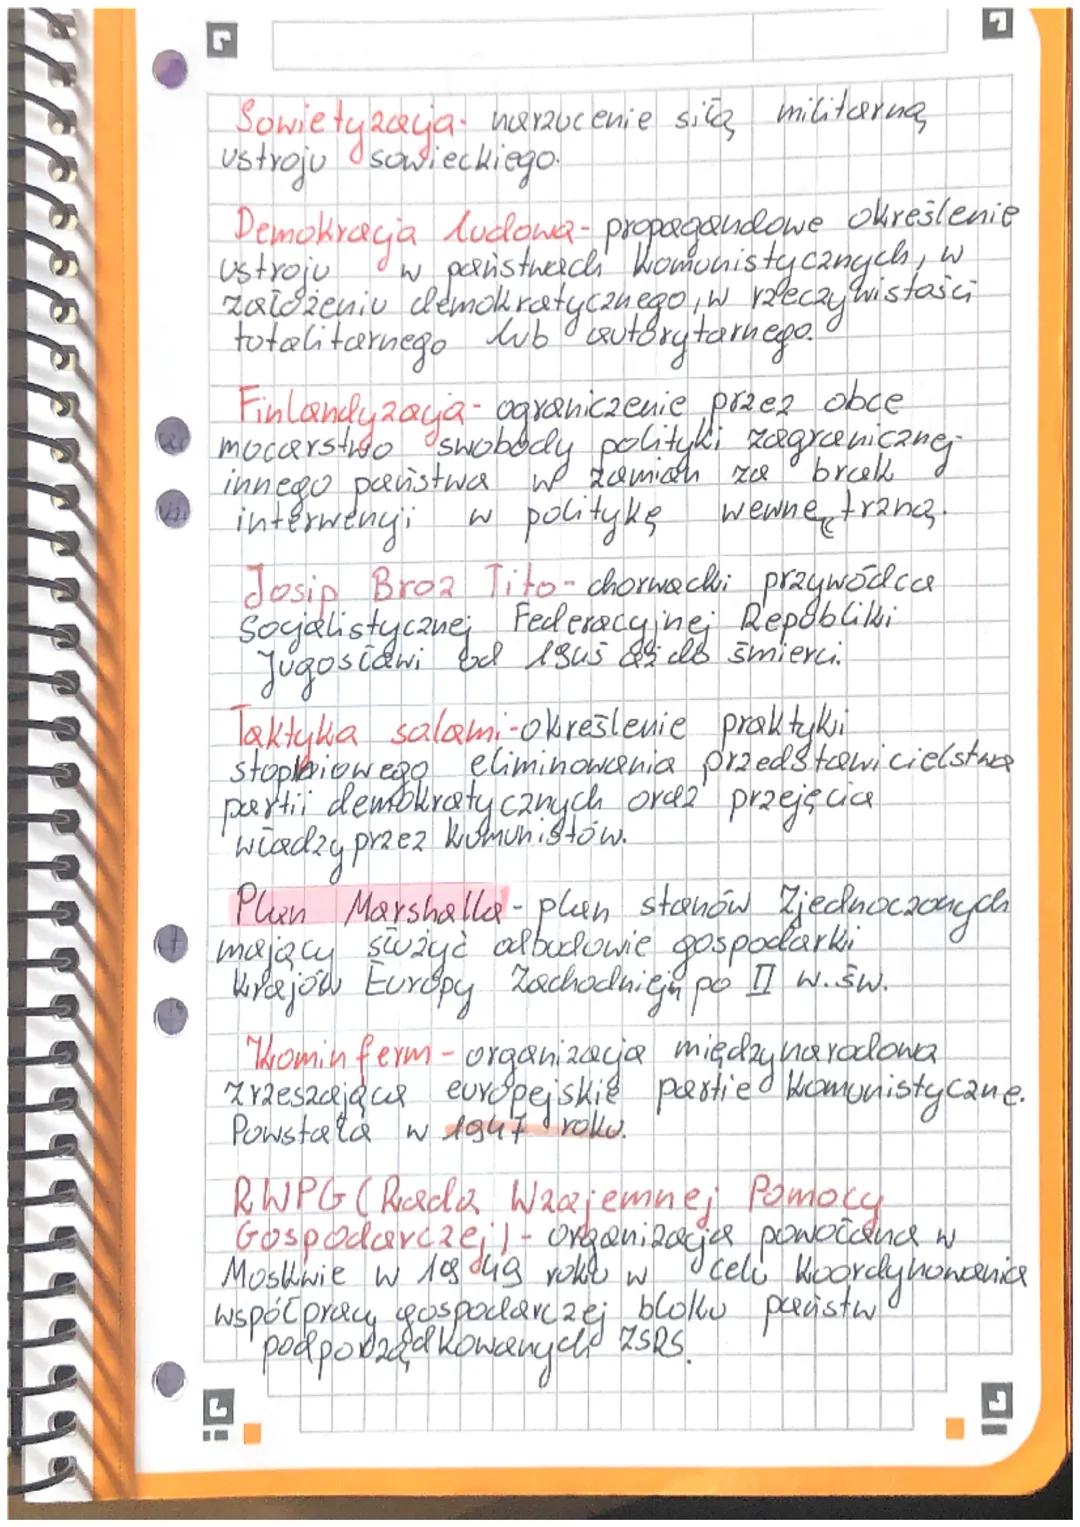 Sowietyzacja- narzucenie siłą militarną
ustroju sowieckiego.
Demokracja ludowa- propagandowe określenie
ustroju w państwach komunistycznych, w
założeniu demokratycznego, w rzeczywistości
totalitarnego lub autorytarnego.
Finlandyzacja- ograniczenie przez obce
mocarstwo swobody polityki zagranicznej
innego państwa w zamian za brak
interwencji w politykę wewnętrzną.
Josip Broz Tito- chorwacki przywódca
Socjalistycznej Federacyjnej Republiki
Jugosławi od 1945 aż do śmierci.
Taktyka salami- określenie praktyki
stopniowego eliminowania przedstawicielstwa
partii demokratycznych oraz przejęcia
władzy przez komunistów.
Plan Marshalla- plan stanów Zjednoczonych
mający służyć odbudowie gospodarki
krajów Europy Zachodniej po II w.św.
Kominform- organizacja międzynarodowa
zrzeszająca europejskie partie komunistyczne.
Powstała w 1947 roku.
RWPG (Rada Wzajemnej Pomocy
Gospodarczej)- organizacja powołana w
Moskwie w 1949 roku w celu koordynowania
współpracy gospodarczej bloku państw
podporządkowanych ZSRS.